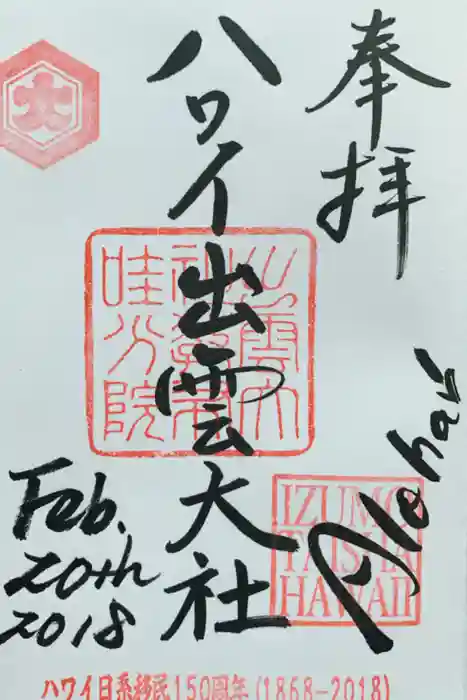 奉拝
ハワイ出雲大社
Aloha!!
Feb.
20th
2018
IZUMO
TAISHA
HAWAII
ハワイ日系移民150周年(1868-2018)